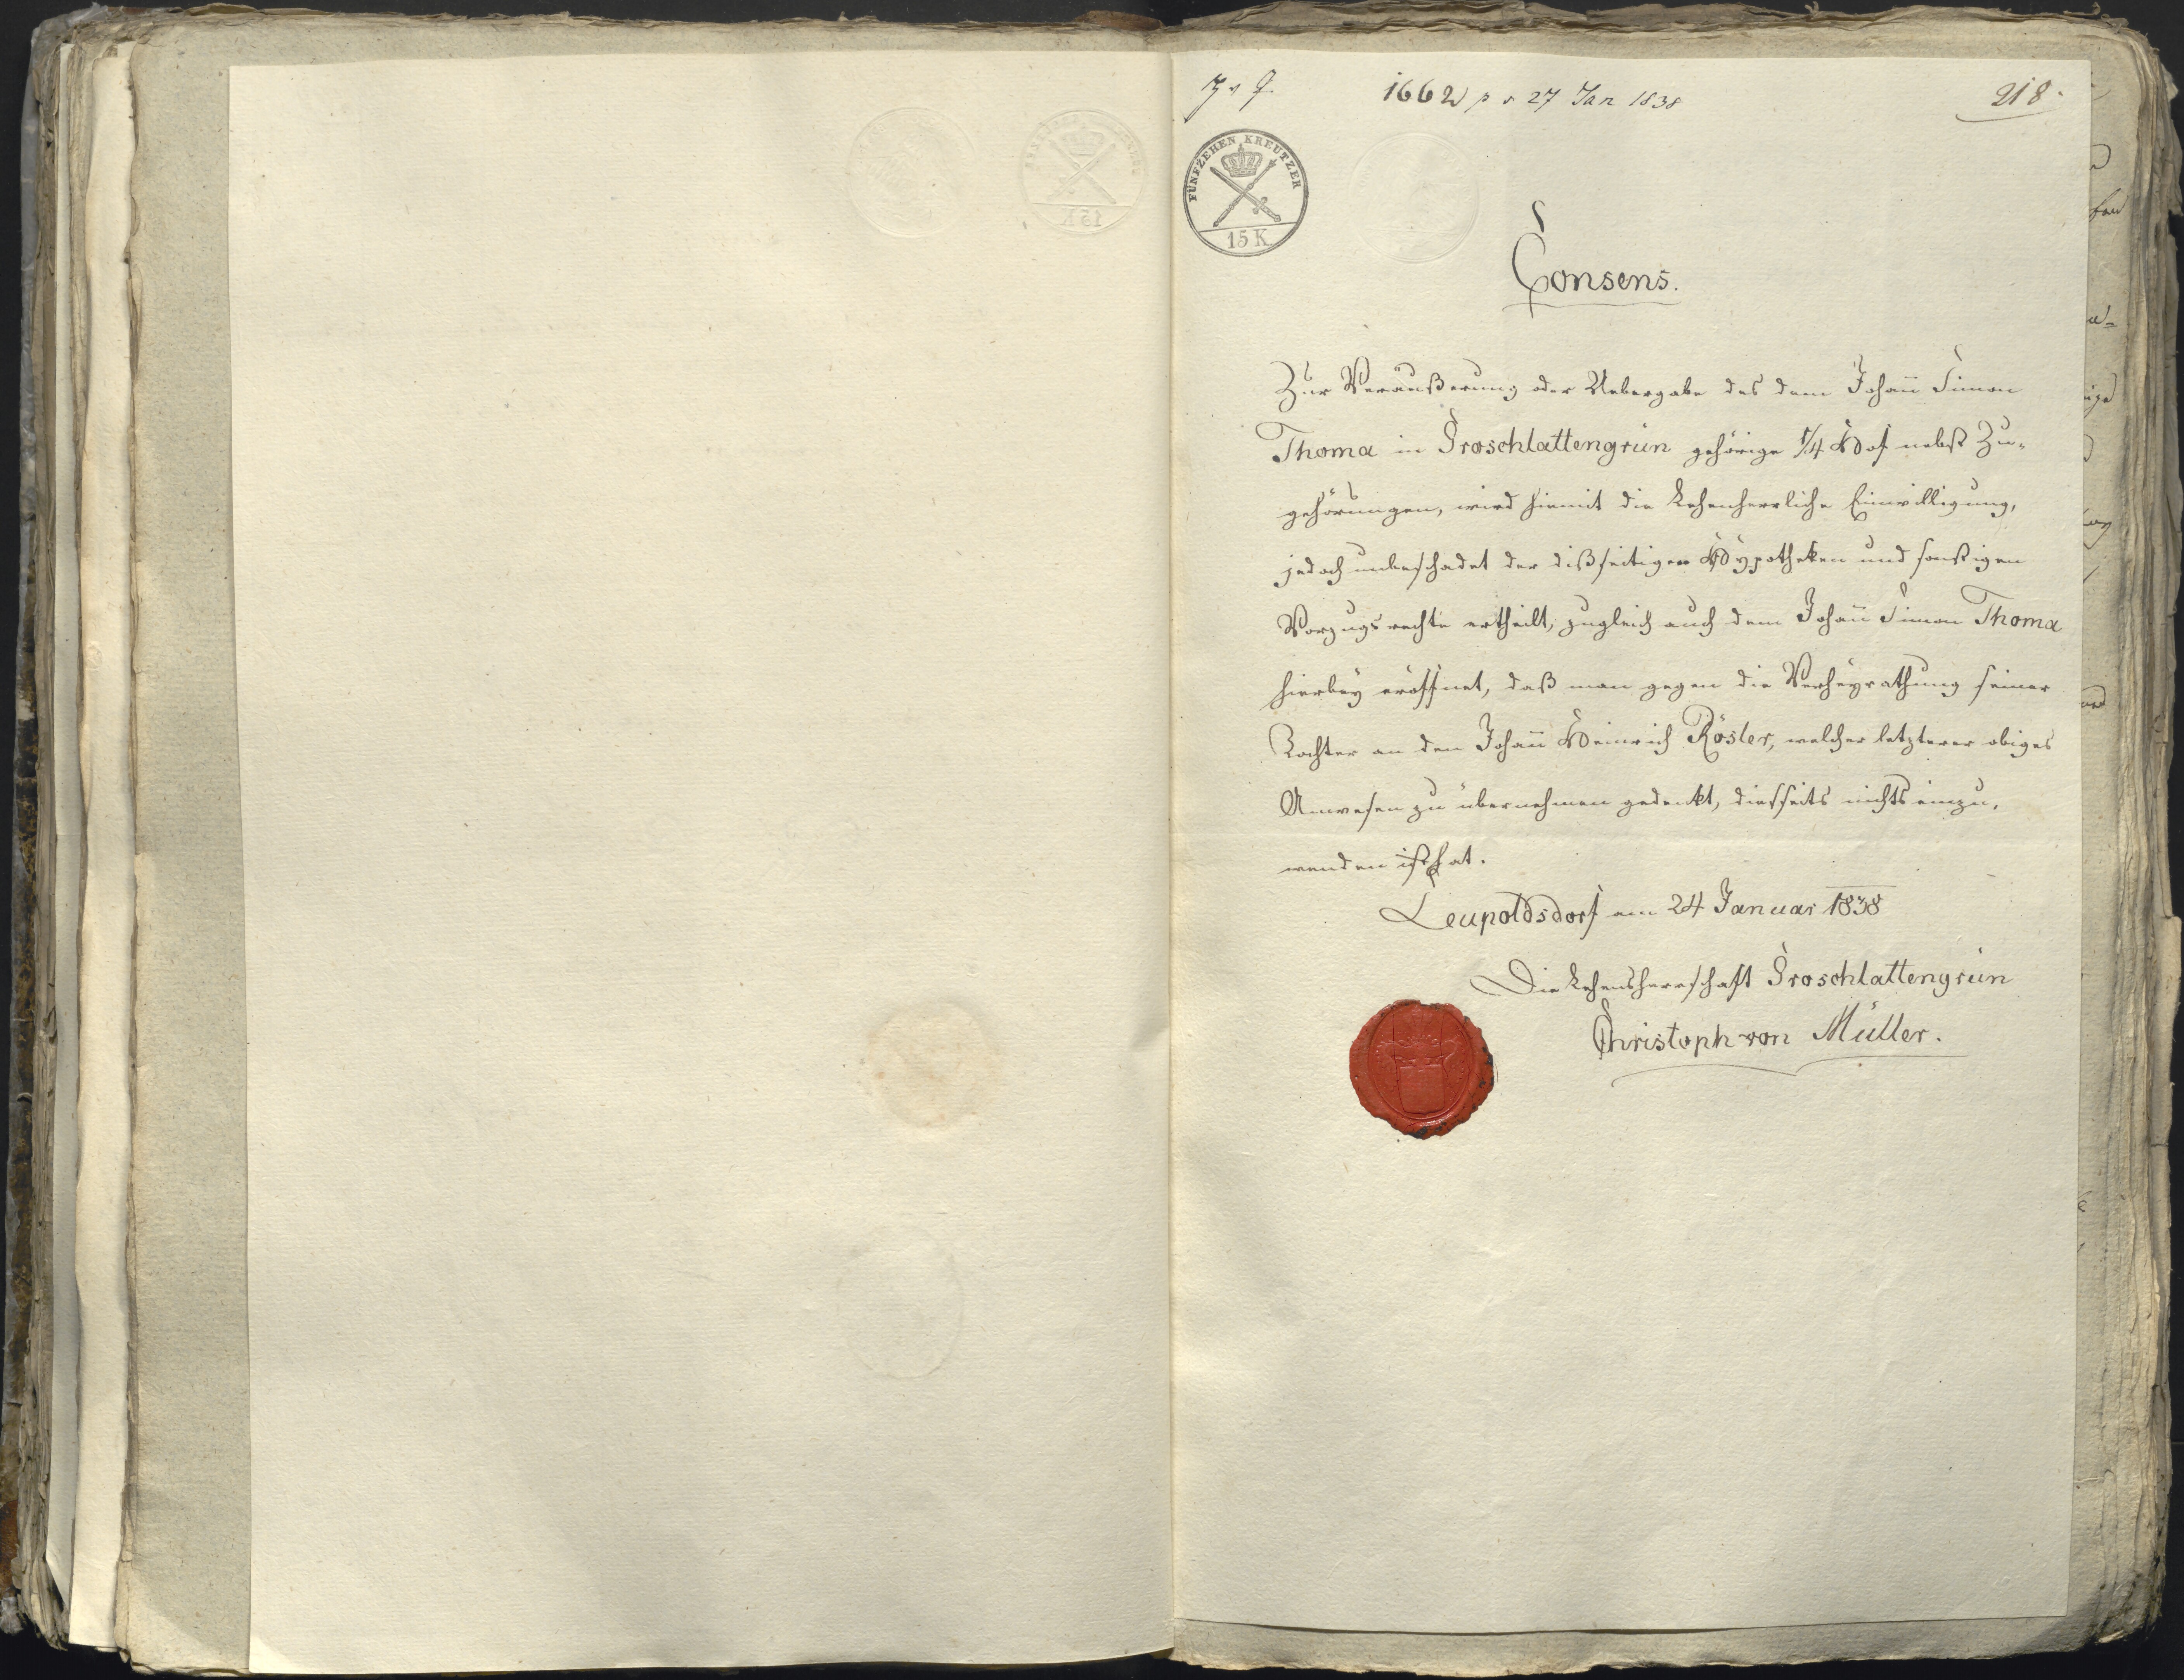 1662 p s 27 Jan 1838
218.
FÜNFZEHEN KREUTZER
15 K
Consens.
Zur Veräußerung oder Uebergabe des dem Johañ Simon
Thoma in Groschlattengrün gehörige 1/4 Hof nebst Zu-
gehörungen, wird hiemit die Lehenherrliche Einwilligung,
jedoch unbeschadet der dißseitigen Hypotheken und sonstigen
Vorzugsrechte ertheilt, zugleich auch dem Johañ Simon Thoma
hierbey eröffnet, daß man gegen die Verheyrathung seiner
Tochter an den Johañ Heinrich Rösler, welcher letzterer obiges
Anwesen zu übernehmen gedenkt, diesseits nichts einzu-
wenden ist hat.
Leupoldsdorf am 24 Januar 1838
Die Lehensherrschaft Groschlattengrün
Christoph von Müller.